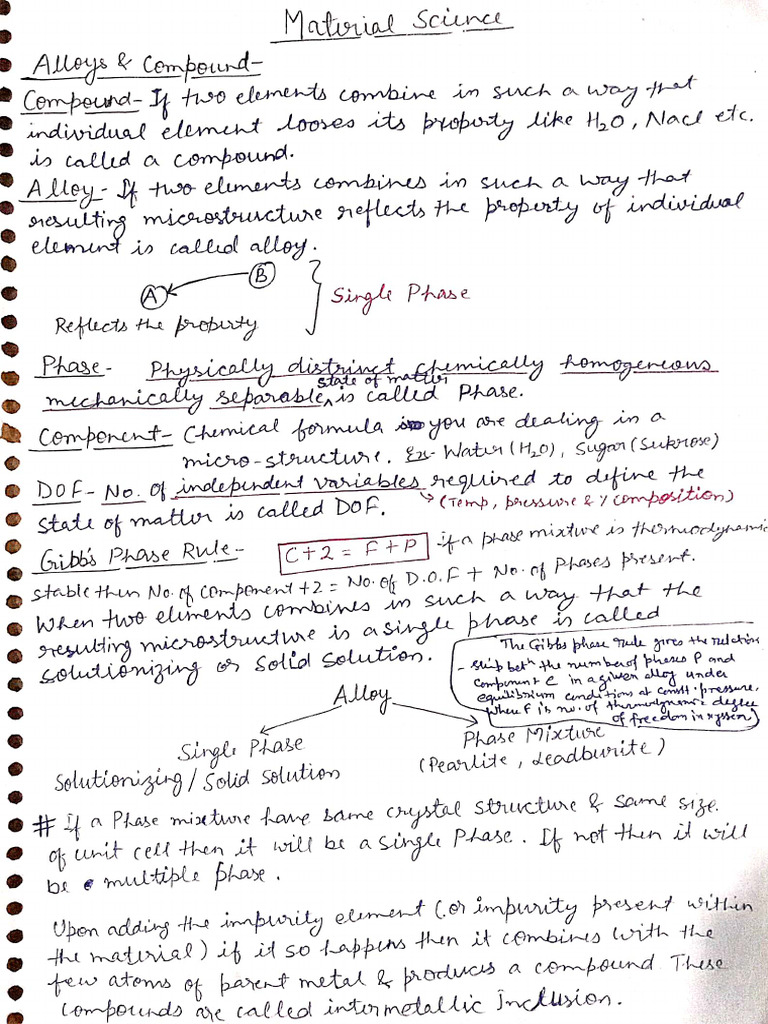 Material Science
Alloys & Compound-
Compound- If two elements combine in such a way that
individual element looses its property like H2O, Nacl etc.
is called a compound.
Alloy- If two elements combines in such a way that
resulting microstructure reflects the property of individual
element is called alloy.
A B
Single Phase
Reflects the property
Phase- Physically distrinct chemically homogeneous
mechanically separable ^ state of matter is called Phase.
Component- Chemical formula you are dealing in a
micro-structure. Ex- Water (H2O), Sugar (Sukrose)
DOF- No. of independent variables required to define the
(Temp, pressure & % composition)
state of matter is called DOF.
Gibb's Phase Rule- C+2 = F+P if a phase mixture is thermodynamic
stable then No. of component +2 = No. of D.O.F + No. of Phases present.
When two elements combines in such a way that the
resulting microstructure is a single phase is called
solutionizing or solid solution.
The Gibbs phase rule gives the relation
-ship betn the number of phases P and
component C in a given alloy under
equilibrium conditions at const. pressure,
where F is no. of thermodynamic degree
of freedom in system)
Alloy
Single Phase
Solutionizing / Solid Solution
Phase Mixture
(Pearlite, Leadburite)
# If a Phase mixture have same crystal structure & same size
of unit cell then it will be a single Phase. If not then it will
be multiple phase.
Upon adding the impurity element (or impurity present within
the material) if it so happens then it combines with the
few atoms of parent metal & produces a compound These
compounds are called intermetallic Inclusion.